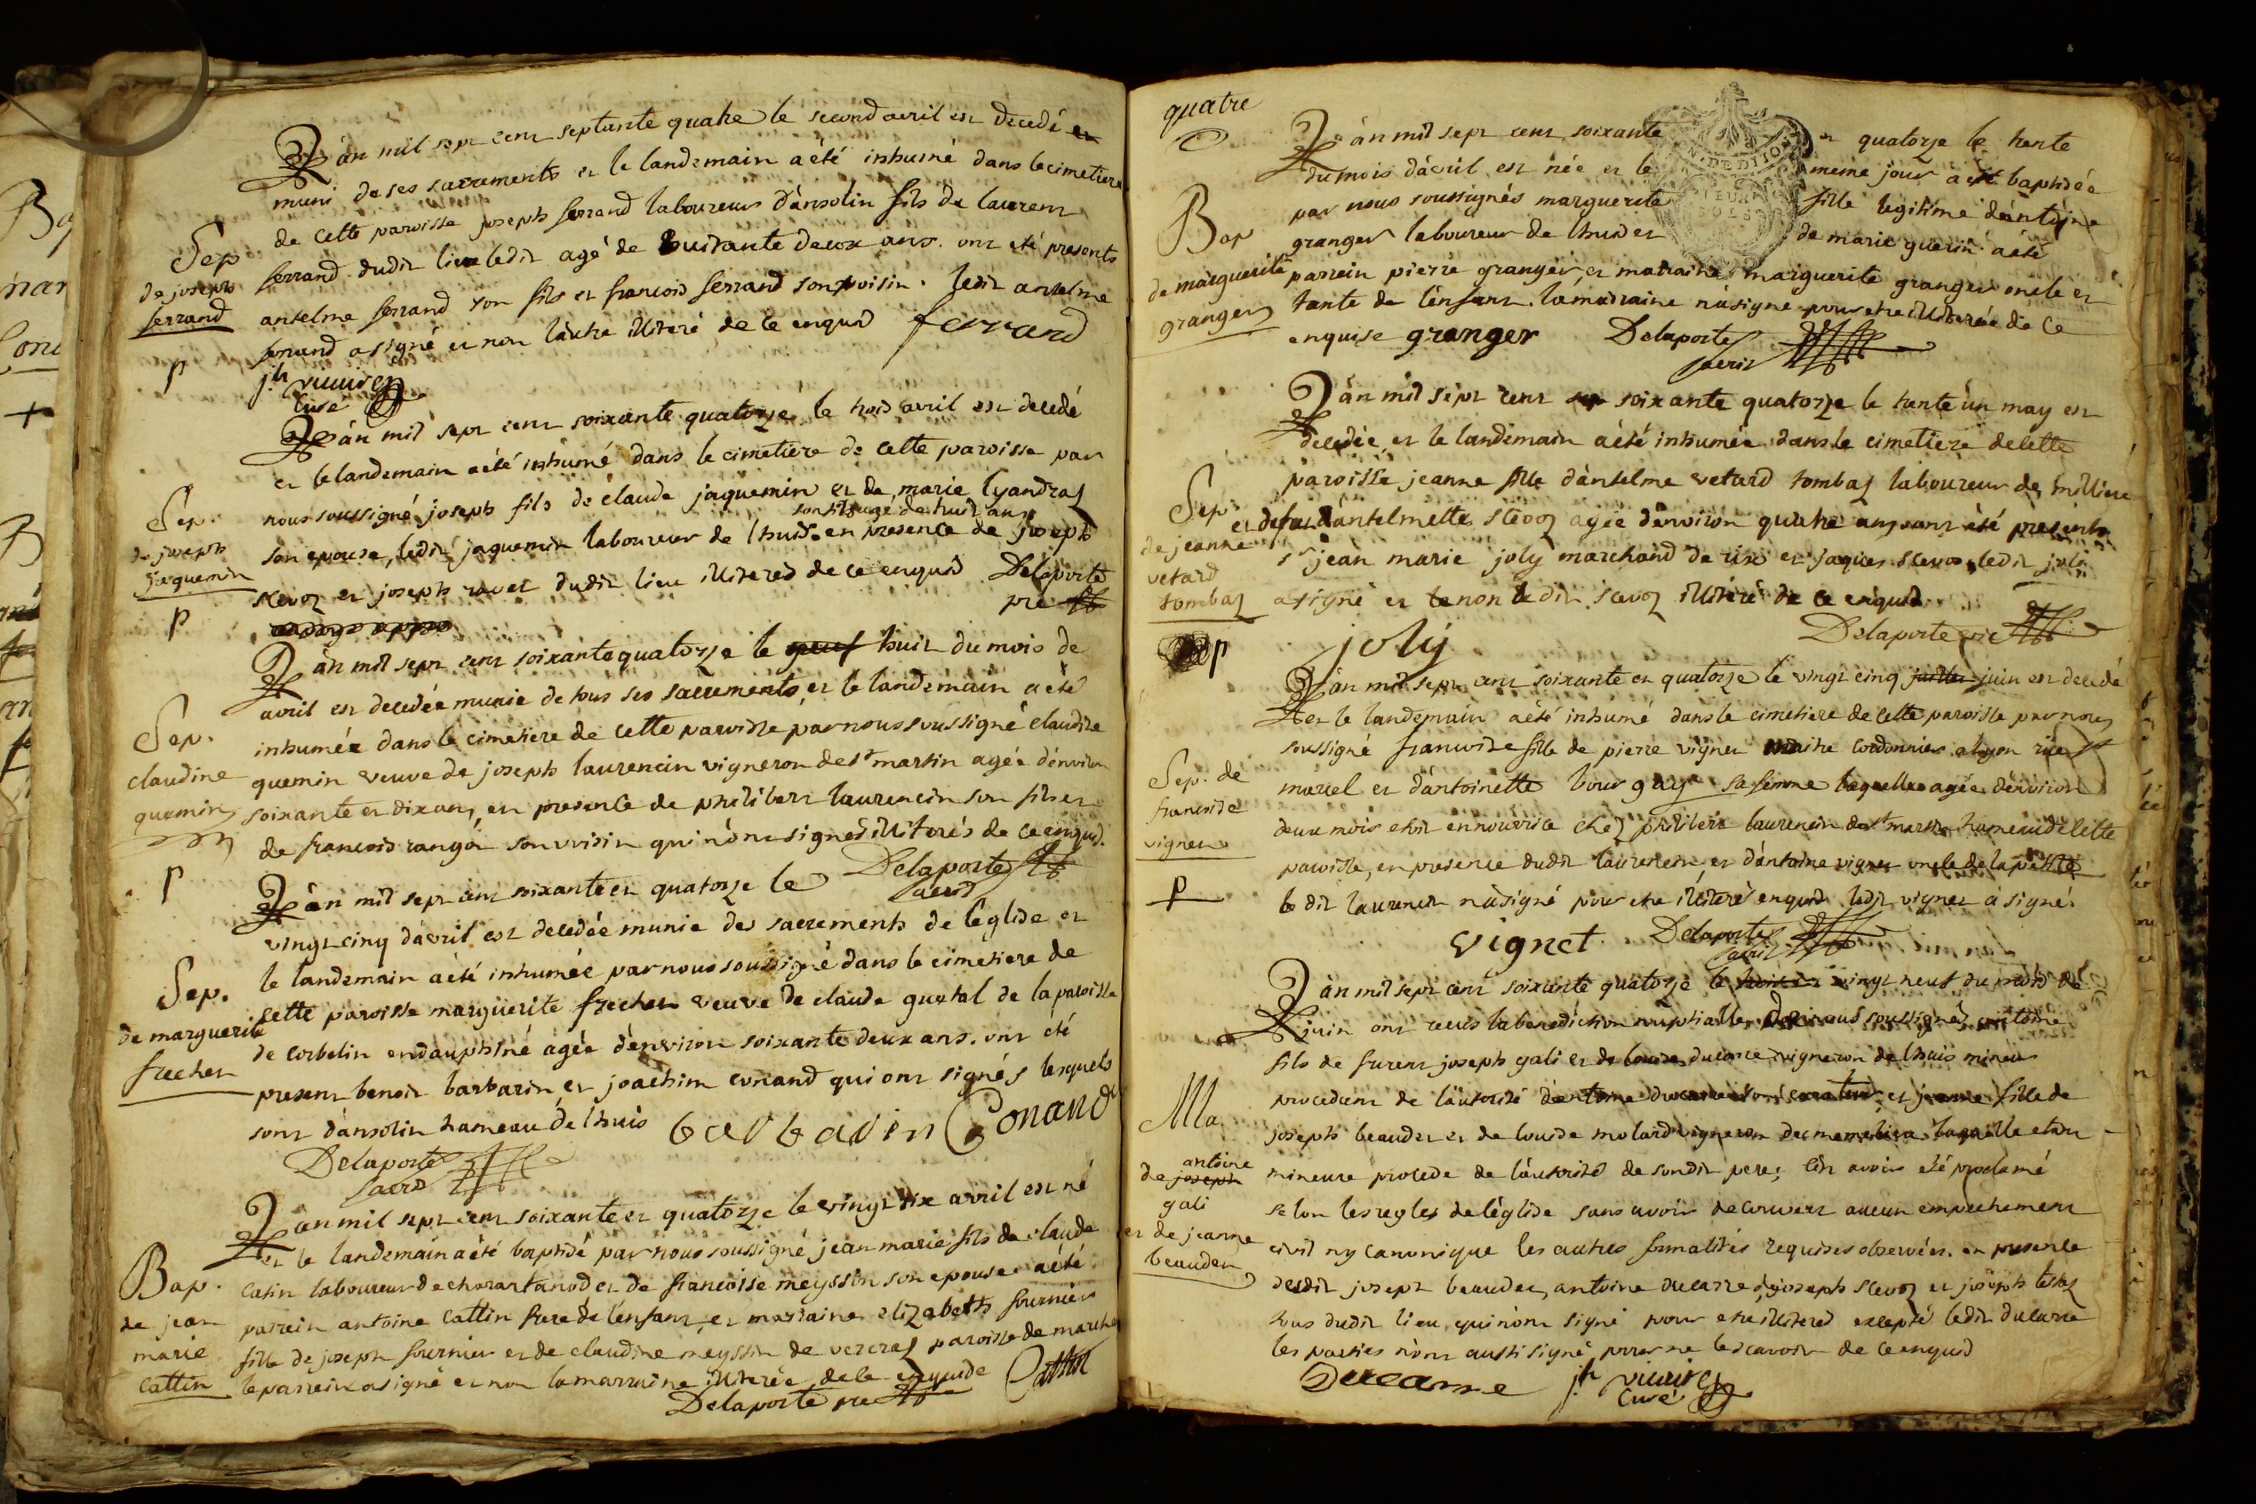 L'an mil sept cent septante quatre le second avril est decedé
muni de ses sacrements et le landemain a été inhumé dans le cimetiere
de cette paroisse joseph ferrand laboureur d'ansolin fils de laurent
ferrand dudit lieu ledit agé de huitante deux ans. ont eté presents
anselme ferrand son fils et francois ferrand son voisin. ledit anselme
ferrand a signé et non l'autre illiteré de ce enquis ferrand
Sep
de joseph
ferrand
p
jh vuiuier
Curé
L'an mil sept cent soixante quatorze le trois avril est decedé
et le landemain a été inhumé dans le cimetiere de cette paroisse par
nous soussigné joseph fils de claude jaquemin et de marie lyandraz
son fils agé de huit ans
son epouse, ledit jaquemin laboureur de lhuis. en presence de joseph
scevoz et joseph ravet dudit lieu illiterés de ce enquis Delaporte
pre
Sep.
de joseph
jaquemin
p
L'an mil sept cent soixante quatorze le neuf huit du mois de
avril est decedée munie de tous ses sacrements et le landemain a été
inhumée dans le cimetiere de cette paroisse par nous soussigné claudine
quemin veuve de joseph laurencin vigneron de st martin agée d'environ
soixante et dix ans, en presence de philibert laurencin son fils et
de francois rangon son voisin qui n'ont signés illiterés de ce enquis.
Sep.
claudine
quemin
p
Delaporte
sacris
L'an mil sept cent soixante et quatorze le
vingt cinq d'avril est decedée munie des sacrements de l'eglise et
le landemain a été inhumée par nous soussigné dans le cimetiere de
cette paroisse marguerite frecher veuve de claude guetal de la paroisse
de corbelin en dauphiné agée d'environ soixante deux ans. ont été
present benoit barbarin et joachim conand qui ont signés lesquels
sont d'ansolin hameau de lhuis barbarin Conand
Sep.
de marguerite
frecher
Delaporte
sacris
L'an mil sept cent soixante et quatorze le vingt six avril est né
et le landemain a été baptisé par nous soussigné jean marie fils de claude
catin laboureur de charantanod et de francoise meyssin son epouse a été
parrein antoine Cattin frere de l'enfant, et marraine elizabeth fournier
fille de joseph fournier et de claudine meyssin de vercraz paroisse de
le parrein a signé et non la marraine illiterée de ce enquise Cattin
Delaporte pre
Bap.
de jean
marie
Cattin
quatre
L'an mil sept cent soixante et quatorze le trente
du mois d'avril est née et le meme jour a été baptisée
par nous soussignés marguerite fille legitime d'antoine
granger laboureur de lhuis et de marie guerin a été
parrein pierre granger et marraine marguerite granger oncle et
tante de l'enfant. la marraine n'a signe pour etre illiterée de ce
enquise granger Delaporte
sacris
Bap
de marguerite
granger
N. DE DIJON
L'an mil sept cent soixante quatorze le trente un may est
decedée et le landemain a été inhumée dans le cimetiere de cette
paroisse jeanne fille d'antelme vetard tombaz laboureur de milliere
et de fut d'antelmette scevoz agée d'environ quatre ans, ont été presents
sr jean marie joly marchand de rix et jaques scevoz, ledit joli
a signé et non ledit scevoz illiteré de ce enquis
Sep.
de jeanne
vetard
tombaz
p
joly Delaporte vic
L'an mil sept cent soixante et quatorze le vingt cinq juillet juin est decedé
et le landemain a été inhumé dans le cimetiere de cette paroisse par nous
soussigné francoise fille de pierre vignet maitre cordonnier a lyon rue
muriel et d'antoinette bourgay sa femme laquelle agée d'environ
deux mois etoit en nourrice chez philibert laurencin de st martin hameau de cette
paroisse, en presence dudit laurencin et d'antoine vignet oncle de la petite
le dit laurencin n'a signé pour etre illiteré enquis ledit vignet a signé.
Sep. de
francoise
vignet
p
vignet. Delaporte
sacris
L'an mil sept cent soixante quatorze le vingt neuf du mois de
juin ont recus la benediction nuptialle par nous soussignez antoine
fils de furent joseph gali et de louise ducarre vigneron de lhuis mineur
procedant de l'autorité d'antoine ducarre son curateur, et jeanne fille de
joseph beaudet et de louise molard vigneron du meme lieu laquelle etant
mineure procede de l'autorité de sondit pere; l'on avoir eté proclamé
selon les regles de l'eglise sans avoir decouvert aucun empechement
civil ny canonique les autres formalités requises observées. en presence
dudit joseph beaudet, antoine ducarre, joseph scevoz et joseph testaz
tous dudit lieu, qui n'ont signé pour etre illiteres excepté ledit ducarre
les parties n'ont aussi signé pour ne le scavoir de ce enquis
Ma
antoine
de joseph
gali
et de jeanne
beaudet
Ducarre jh vuiuier
Curé